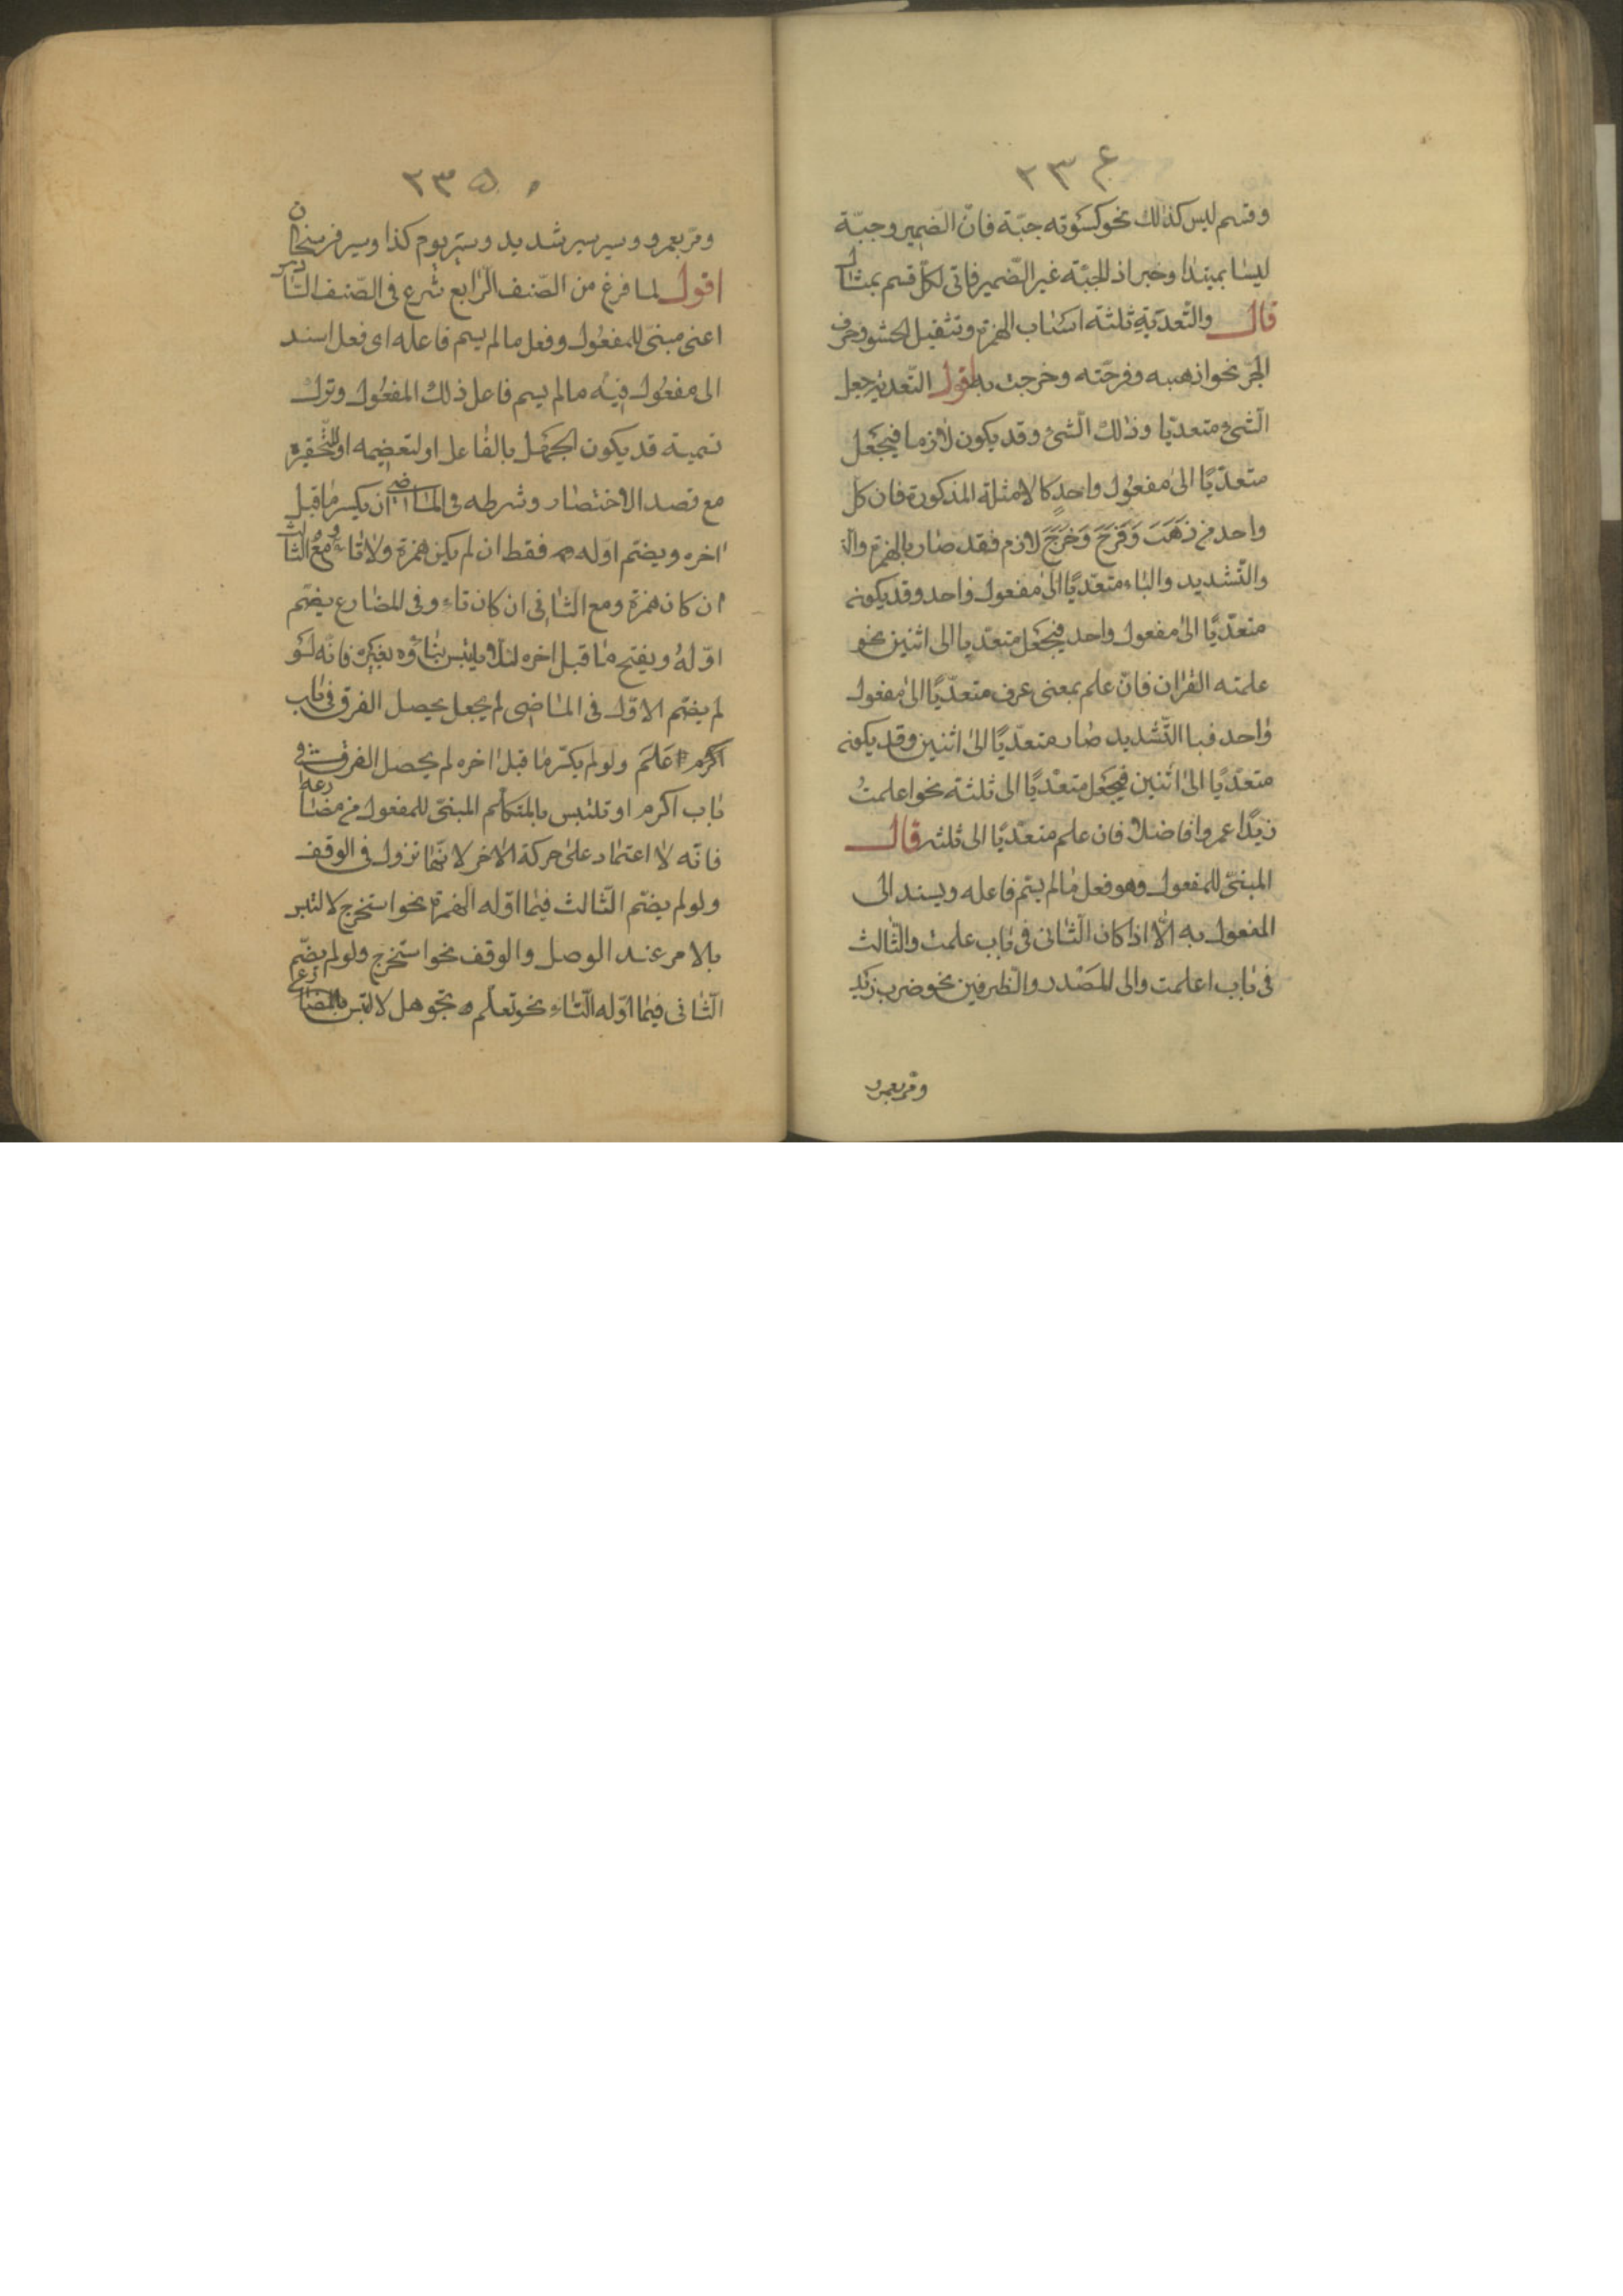 ٢٣٤
وقسم ليس كذلك نحو كسوته جبّة فانّ الضمير وجبّة
ليسا بمبتدا وخبر اذ الجبّة غير الضّمير فاتى لكلّ قسم بمثال
قال والتّعدية ثلثة اسباب الهمزة وتثقيل الحشو وحرف
الجرّ نحو اذهبته وفرحّته وخرجت به اقول التّعدية جعل
الشئ متعدّيا وذلك الشئ قد يكون لازما فيجعل
متعدّيًا الى مفعول واحدٍ كالامثلة المذكورة فان كل
واحد من ذَهَبَ وَفَرِحَ وَخَرَجَ لازم فقد صار بالهمزة وال
والتّشديد والباء متعدّيًا الى مفعول واحد وقد يكون
متعدّيًا الى مفعول واحد فيجعل متعدّيا الى اثنين نحو
علمته القران فانّ علم بمعنى عرف متعدّيًا الى مفعول
واحد فبا التّشديد صار متعدّيًا الى اثنين وقد يكون
متعدّيًا الى اثنين فيجعل متعدّيًا الى ثلثة نحو اعلمتُ
زيدًا عمروا فاضلا فان علم متعدّيًا الى ثلثة قال
المبنىّ للمفعول وهو فعل ما لم يسّم فاعله ويسند الى
المفعول به الّا اذا كان الثّانى فى باب علمت والثّالث
فى باب اعلمت والى المَصْدر والظرفين نحو ضرب زيد
ومر بعمرو
٢٣٥
ومرّ بعمرو وسير سير شديد وسير يوم كذا وسير فرسخان
اقول لما فرغ من الصّنف الرّابع شرع فى الصّنف الخامس
اعنى مبنىّ للمفعول وفعل ما لم يسم فاعله اى فعل اسند
الى مفعول فيه ما لم يسم فاعل ذلك المفعول وترك
تسمية قد يكون لجهل بالفاعل او لتعضيمه او لتحقيره
مع قصد الاختصار وشرطه فى الماضى ان يكسر ما قبل
اخره ويضمّ اوّله فقط ان لم يكن همزة ولا تاء ومع الثالث
ان كان همزة ومع الثانى ان كان تاء وفى المضارع يضمّ
اوّلهُ ويفتح ما قبل اخره لئلّا يلتبس بناؤه بغيره فانّه لو
لم يضمّ الاوّل فى الماضى لم يجعل يحصل الفرق فى باب
عَلم ولو لم يكسّر ما قبل اخره لم يحصل الفرق فى
باب اكرم او تلتبس بالمتكلّم المبنىّ للمفعول من مضارعه
فانّه لا اعتماد على حركة الاخر لانّها تزول فى الوقف
ولو لم يضمّ الثّالث فيما اوّله الهمزة نحو استخرج لالتبس
بالامر عند الوصل والوقف نحو استخرج ولو لم يضمّ
الثّانى فيما اوّله التّاء نحو تعلّم وتجوهل لالتبس بالمضارع